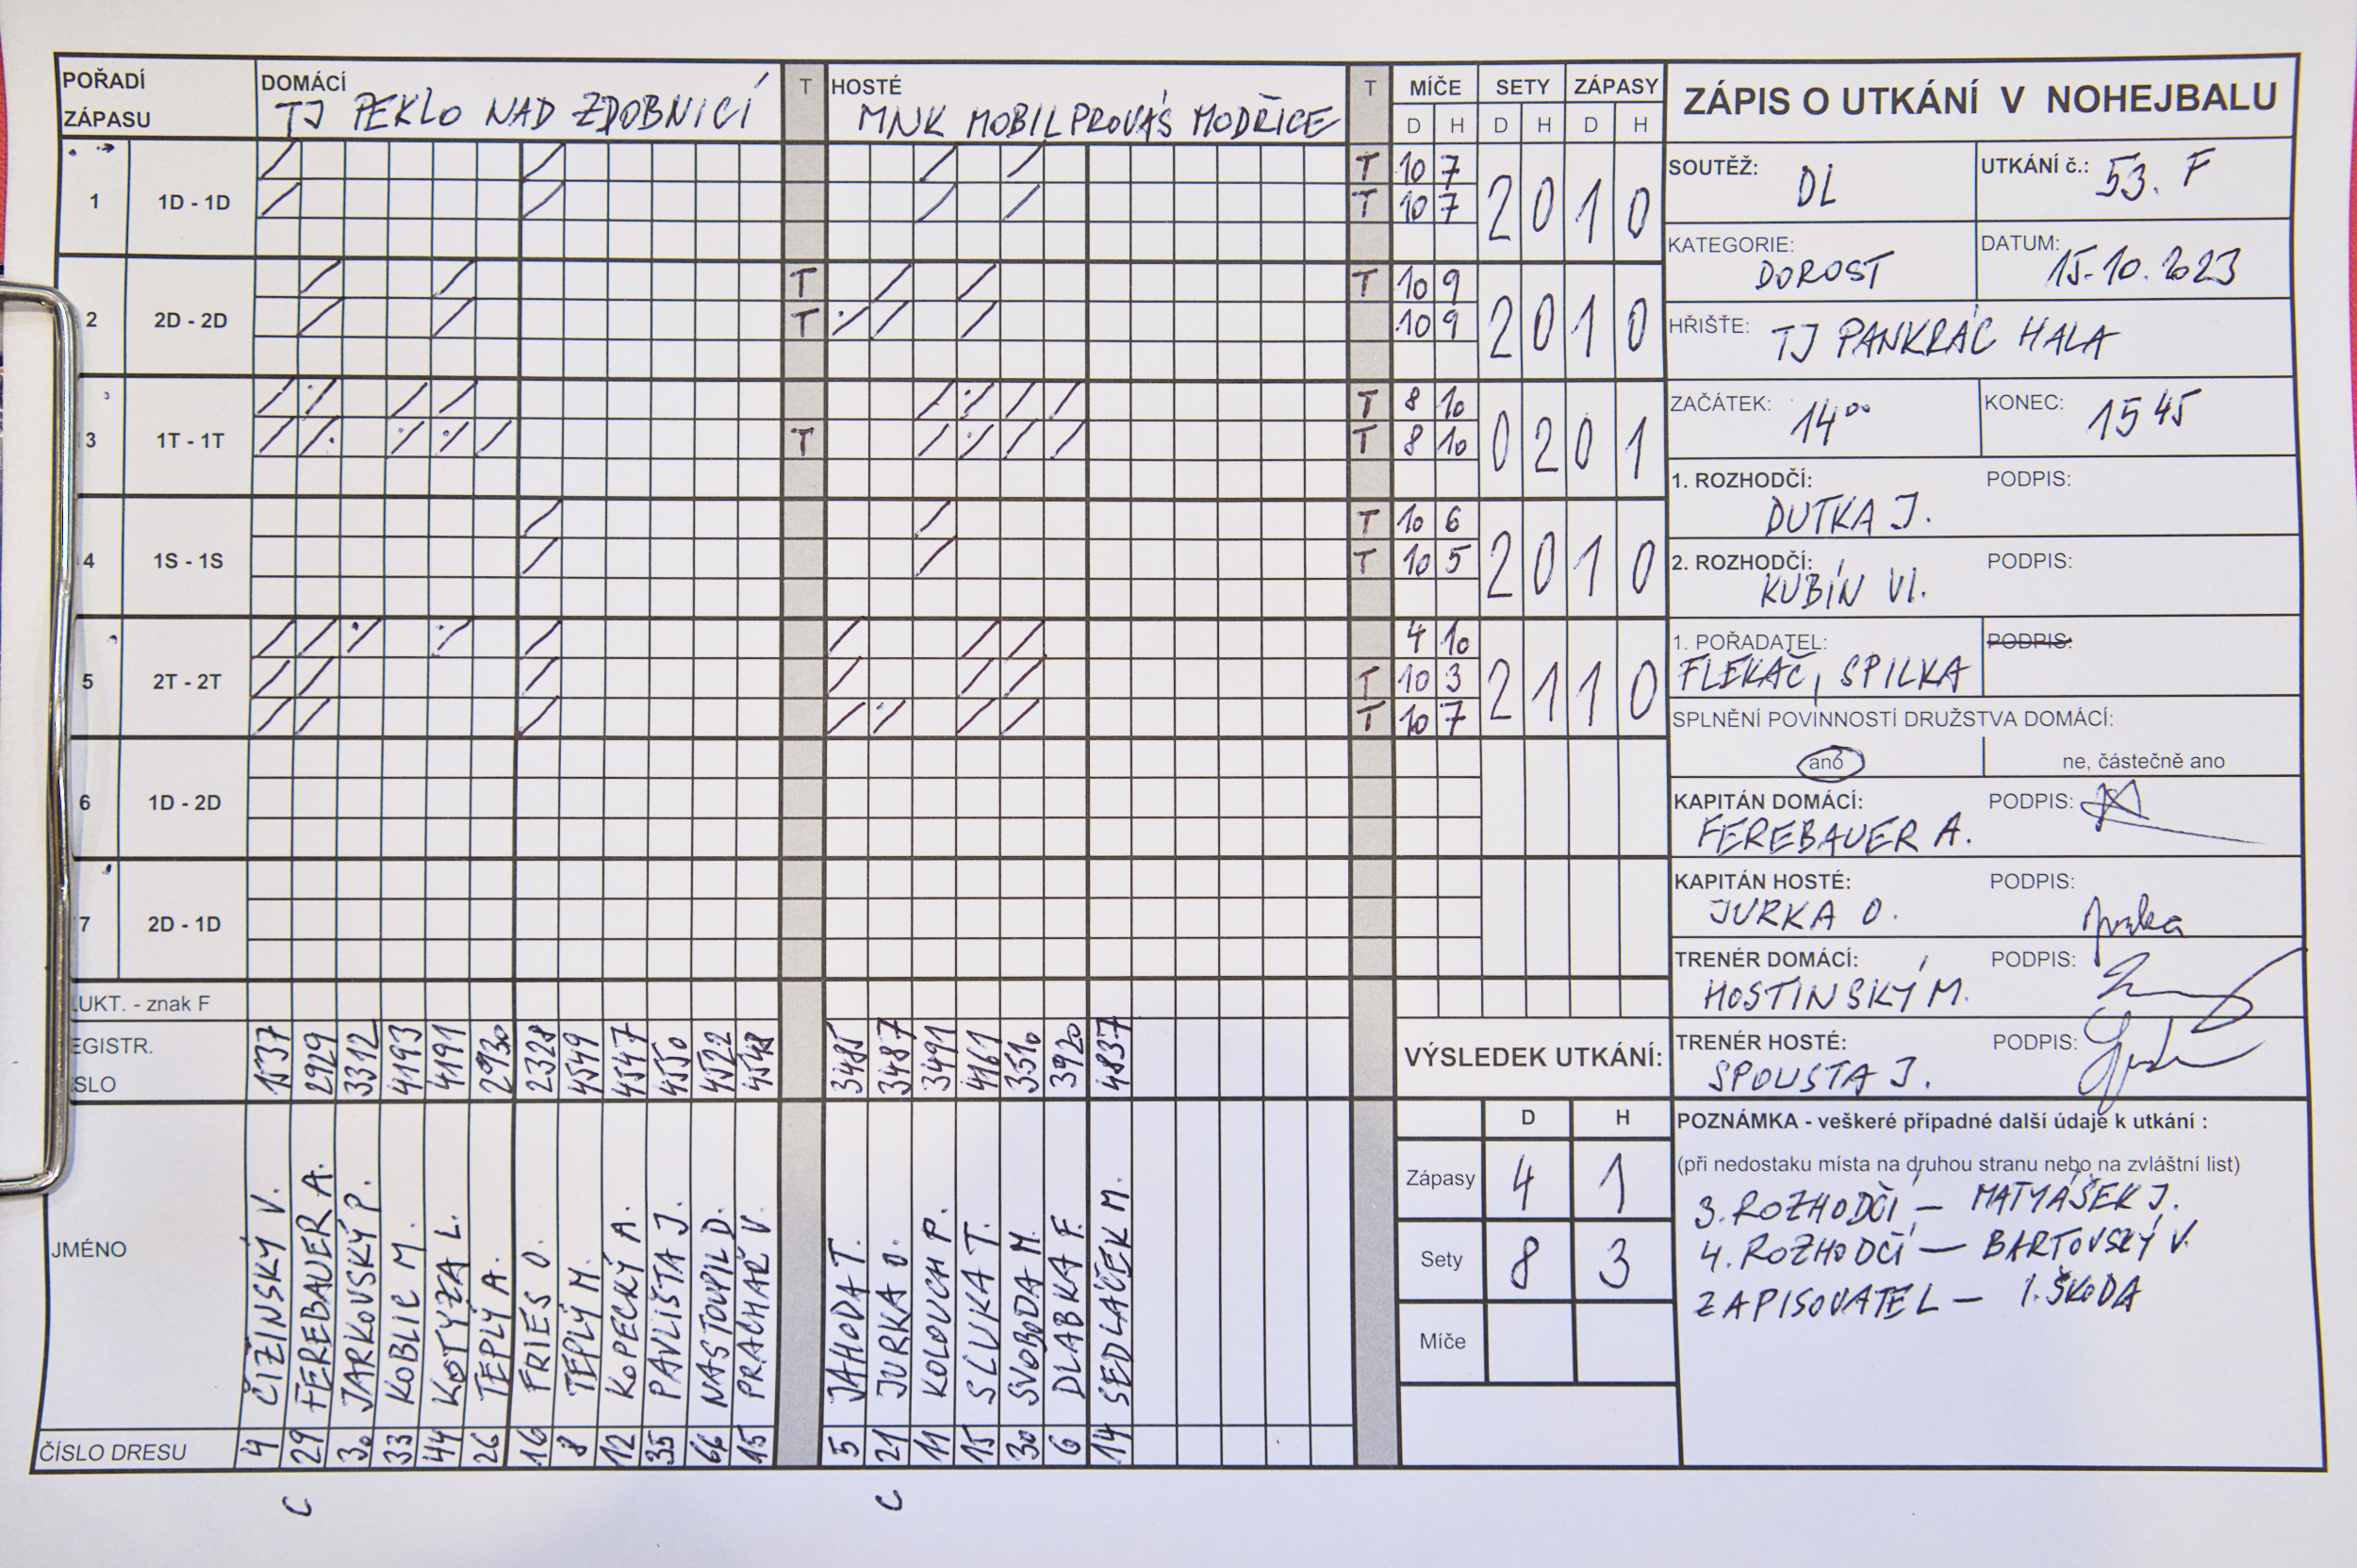 POŘADÍ
ZÁPASU
DOMÁCÍ
TJ PEKLO NAD ZDOBNICÍ
T
HOSTÉ
MNK MOBILPROVÁS MODŘICE
T
MÍČE SETY ZÁPASY
D H D H D H
1 1D - 1D T 10 7
T 10 7
2 0 1 0
2 2D - 2D T T 10 9
T 10 9
2 0 1 0
3 1T - 1T T 8 10
T T 8 10
0 2 0 1
4 1S - 1S T 10 6
T 10 5
2 0 1 0
5 2T - 2T 4 10
T 10 3
T 10 7
2 1 1 0
6 1D - 2D
7 2D - 1D
UKT. - znak F
EGISTR.
SLO
1537 2929 3312 4193 4191 2930 2328 4549 4547 4550 4522 4548
3485 3487 3491 4161 3510 3920 4837
JMÉNO
ČIŽINSKÝ V.
FEREBAUER A.
JARKOVSKÝ P.
KOBLIC M.
KOTYZA L.
TEPLÝ A.
FRIES O.
TEPLÝ M.
KOPECKÝ A.
PAVLIŠTA J.
NASTOUPIL D.
PRACHAŘ V.
JAHODA T.
JURKA O.
KOLOUCH P.
SLUKA T.
SVOBODA M.
DLABKA F.
SEDLÁČEK M.
ČÍSLO DRESU
4 29 30 33 44 26 16 8 12 35 66 15
5 21 11 15 30 6 14
C C
VÝSLEDEK UTKÁNÍ:
D H
Zápasy 4 1
Sety 8 3
Míče
ZÁPIS O UTKÁNÍ V NOHEJBALU
SOUTĚŽ: DL
UTKÁNÍ č.: 53. F
KATEGORIE: DOROST
DATUM: 15.10.2023
HŘIŠTE: TJ PANKRÁC HALA
ZAČÁTEK: 14⁰⁰
KONEC: 15 45
1. ROZHODČÍ: PODPIS:
DUTKA J.
2. ROZHODČÍ: PODPIS:
KUBÍN Vl.
1. POŘADATEL: PODPIS:
FLEKAČ, SPILKA
SPLNĚNÍ POVINNOSTÍ DRUŽSTVA DOMÁCÍ:
ano ne, částečně ano
KAPITÁN DOMÁCÍ: PODPIS:
FEREBAUER A.
KAPITÁN HOSTÉ: PODPIS:
JURKA O. Jurka
TRENÉR DOMÁCÍ: PODPIS:
HOSTINSKÝ M.
TRENÉR HOSTÉ: PODPIS:
SPOUSTA J.
POZNÁMKA - veškeré případné další údaje k utkání :
(při nedostaku místa na druhou stranu nebo na zvláštní list)
3. ROZHODČÍ – MATYÁŠEK J.
4. ROZHODČÍ – BARTOVSKÝ V.
ZAPISOVATEL – I. ŠKODA